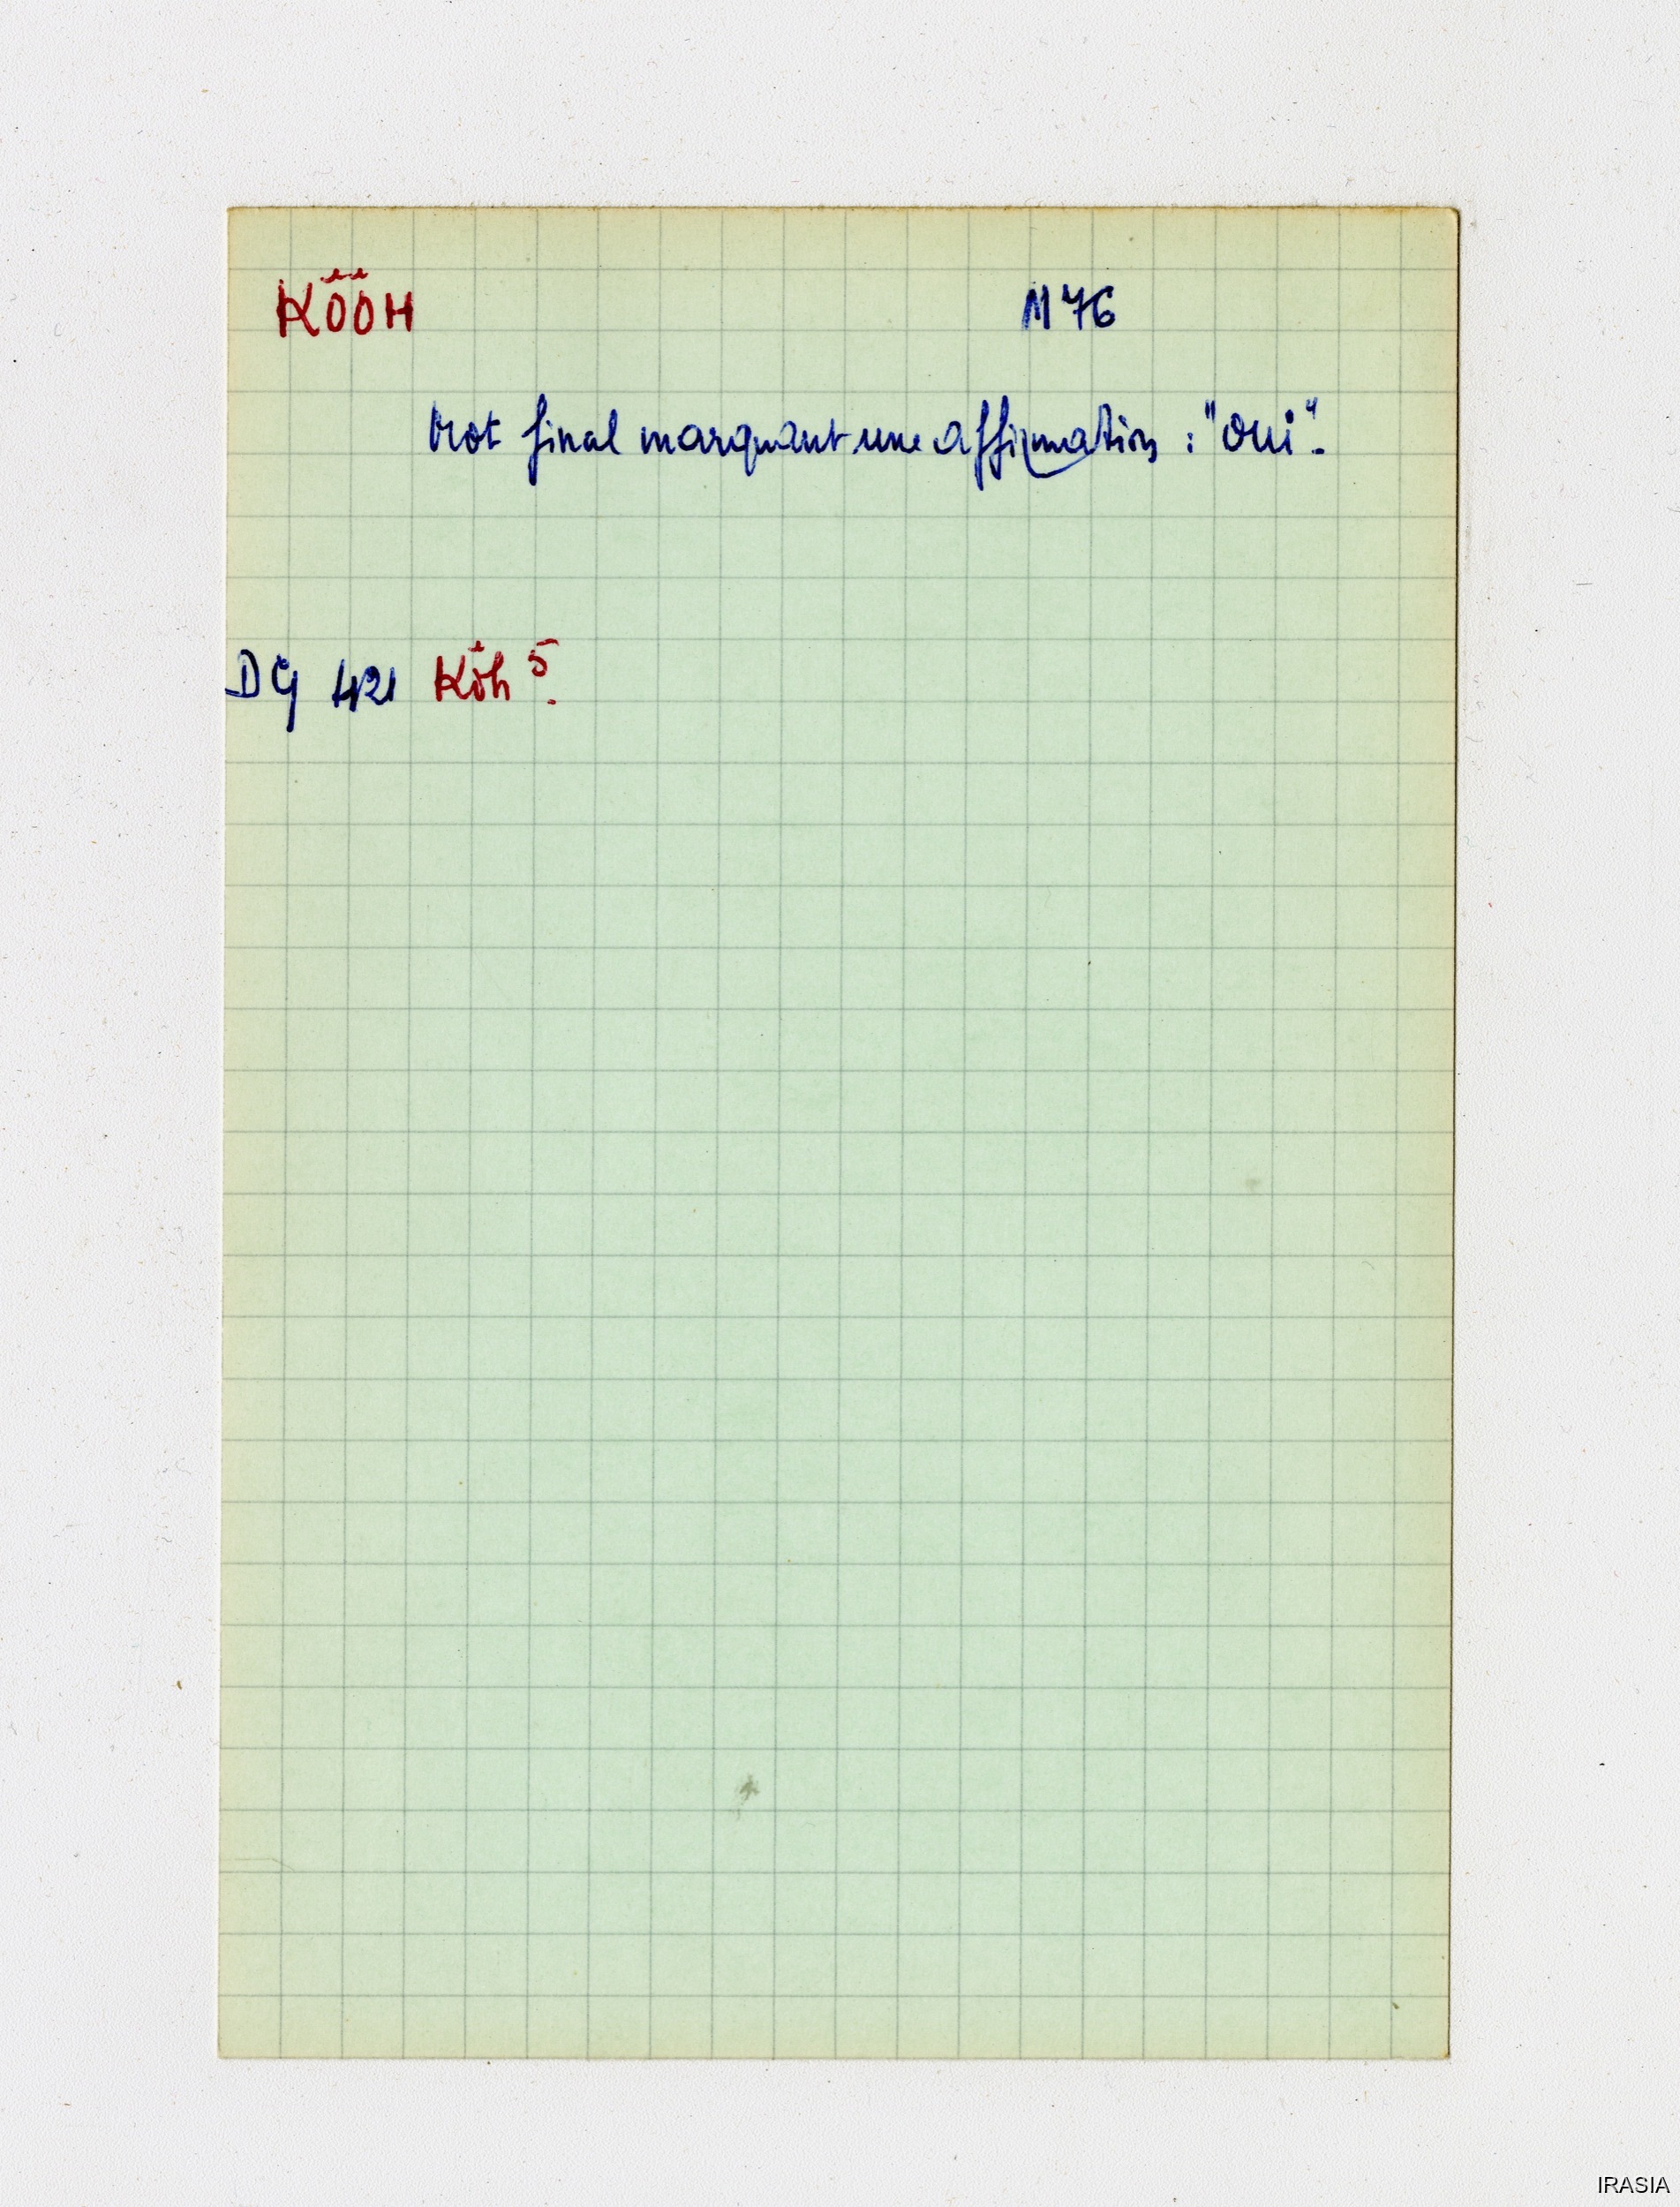 KÖÖH M 76
Mot final marquant une affirmation : "oui".
DG 421 Köh 5.
IRASIA